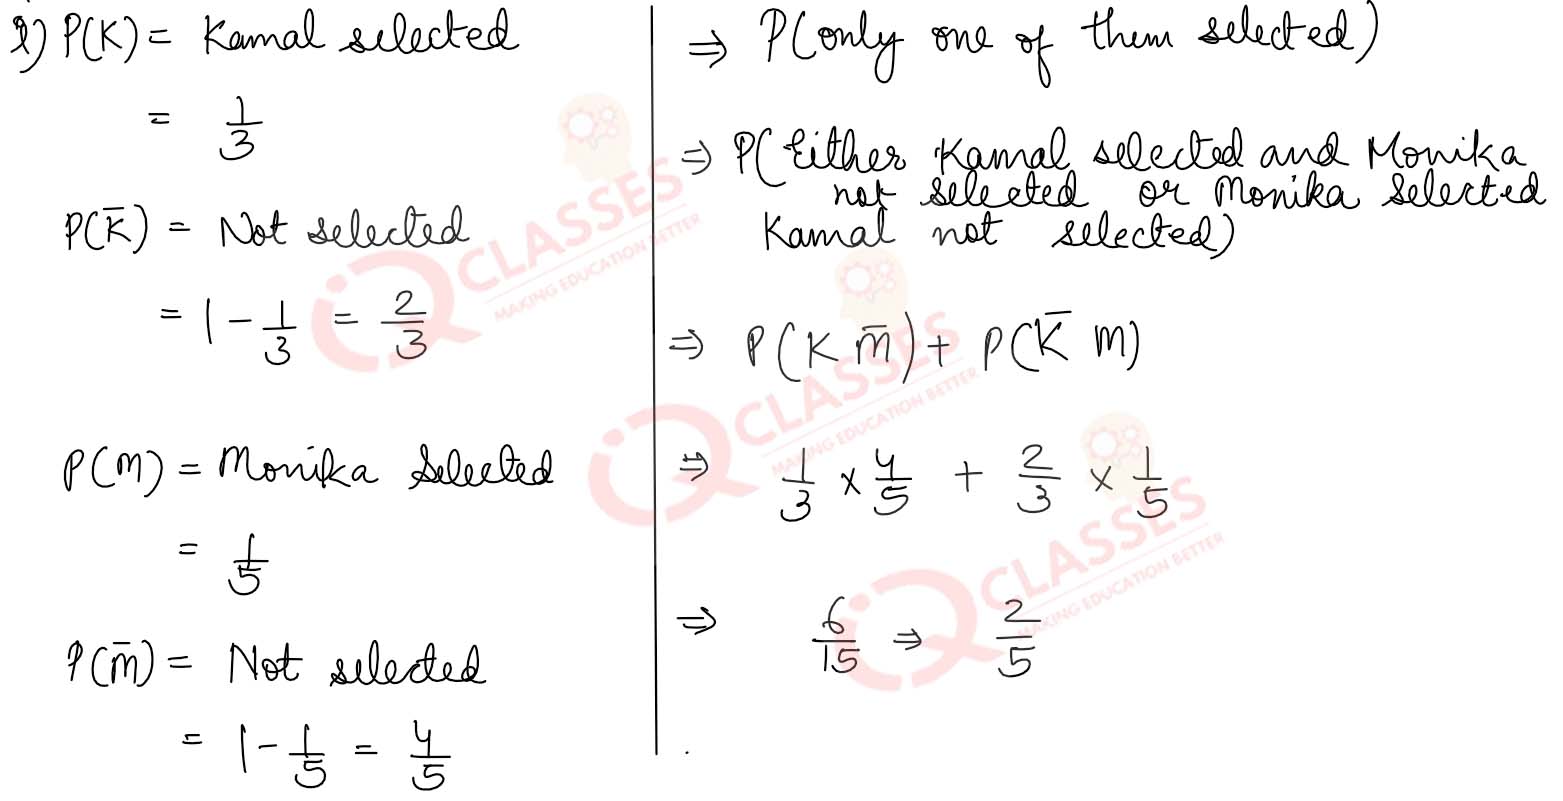 i) P(K) = Kamal selected
= 1/3
P(K̅) = Not selected
= 1 - 1/3 = 2/3
P(M) = Monika Selected
= 1/5
P(m̅) = Not selected
= 1 - 1/5 = 4/5
⇒ P(only one of them selected)
⇒ P(Either Kamal selected and Monika
not selected or Monika selected
Kamal not selected)
⇒ P(K m̅) + P(K̅ M)
⇒ 1/3 × 4/5 + 2/3 × 1/5
⇒ 6/15 ⇒ 2/5
iQ CLASSES
MAKING EDUCATION BETTER
iQ CLASSES
MAKING EDUCATION BETTER
iQ CLASSES
MAKING EDUCATION BETTER